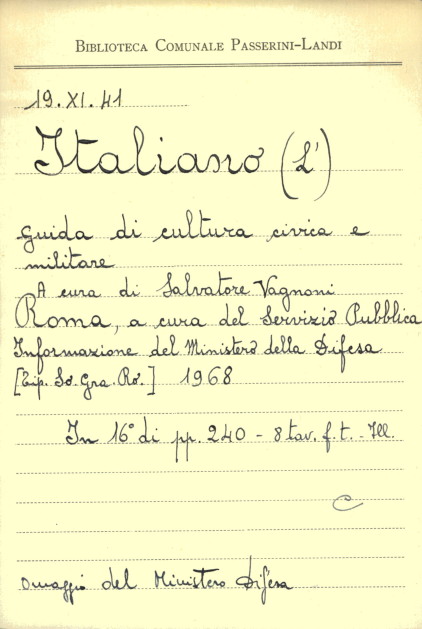 BIBLIOTECA COMUNALE PASSERINI-LANDI
19.XI.41
Italiano (L')
Guida di cultura civica e
militare
A cura di Salvatore Vagnoni
Roma, a cura del Servizio Pubblica
Informazione del Ministero della Difesa
[Tip. So. Gra. Ro.] 1968
In 16° di pp. 240 - 8 tav. f. t. - Ill.
C
Omaggio del Ministero Difesa